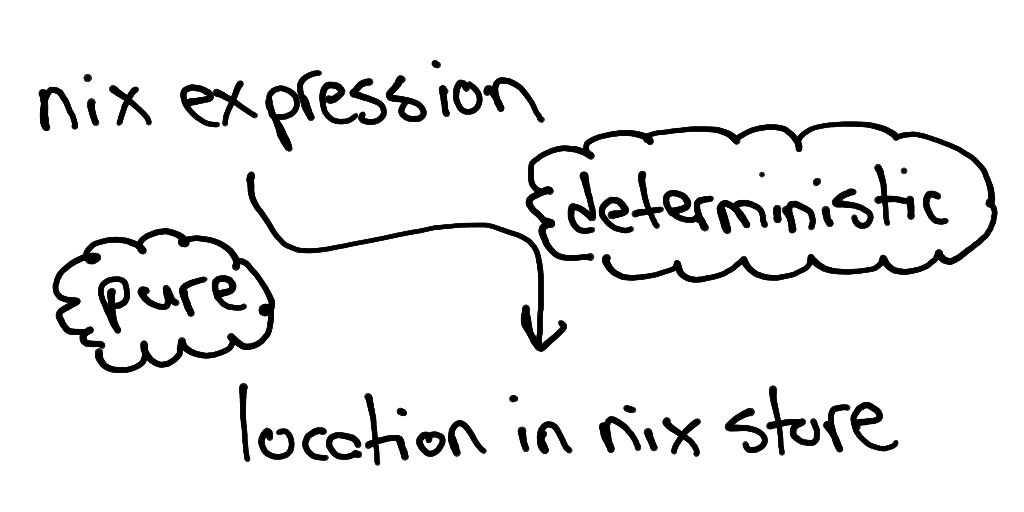 nix expression
deterministic
pure
location in nix store